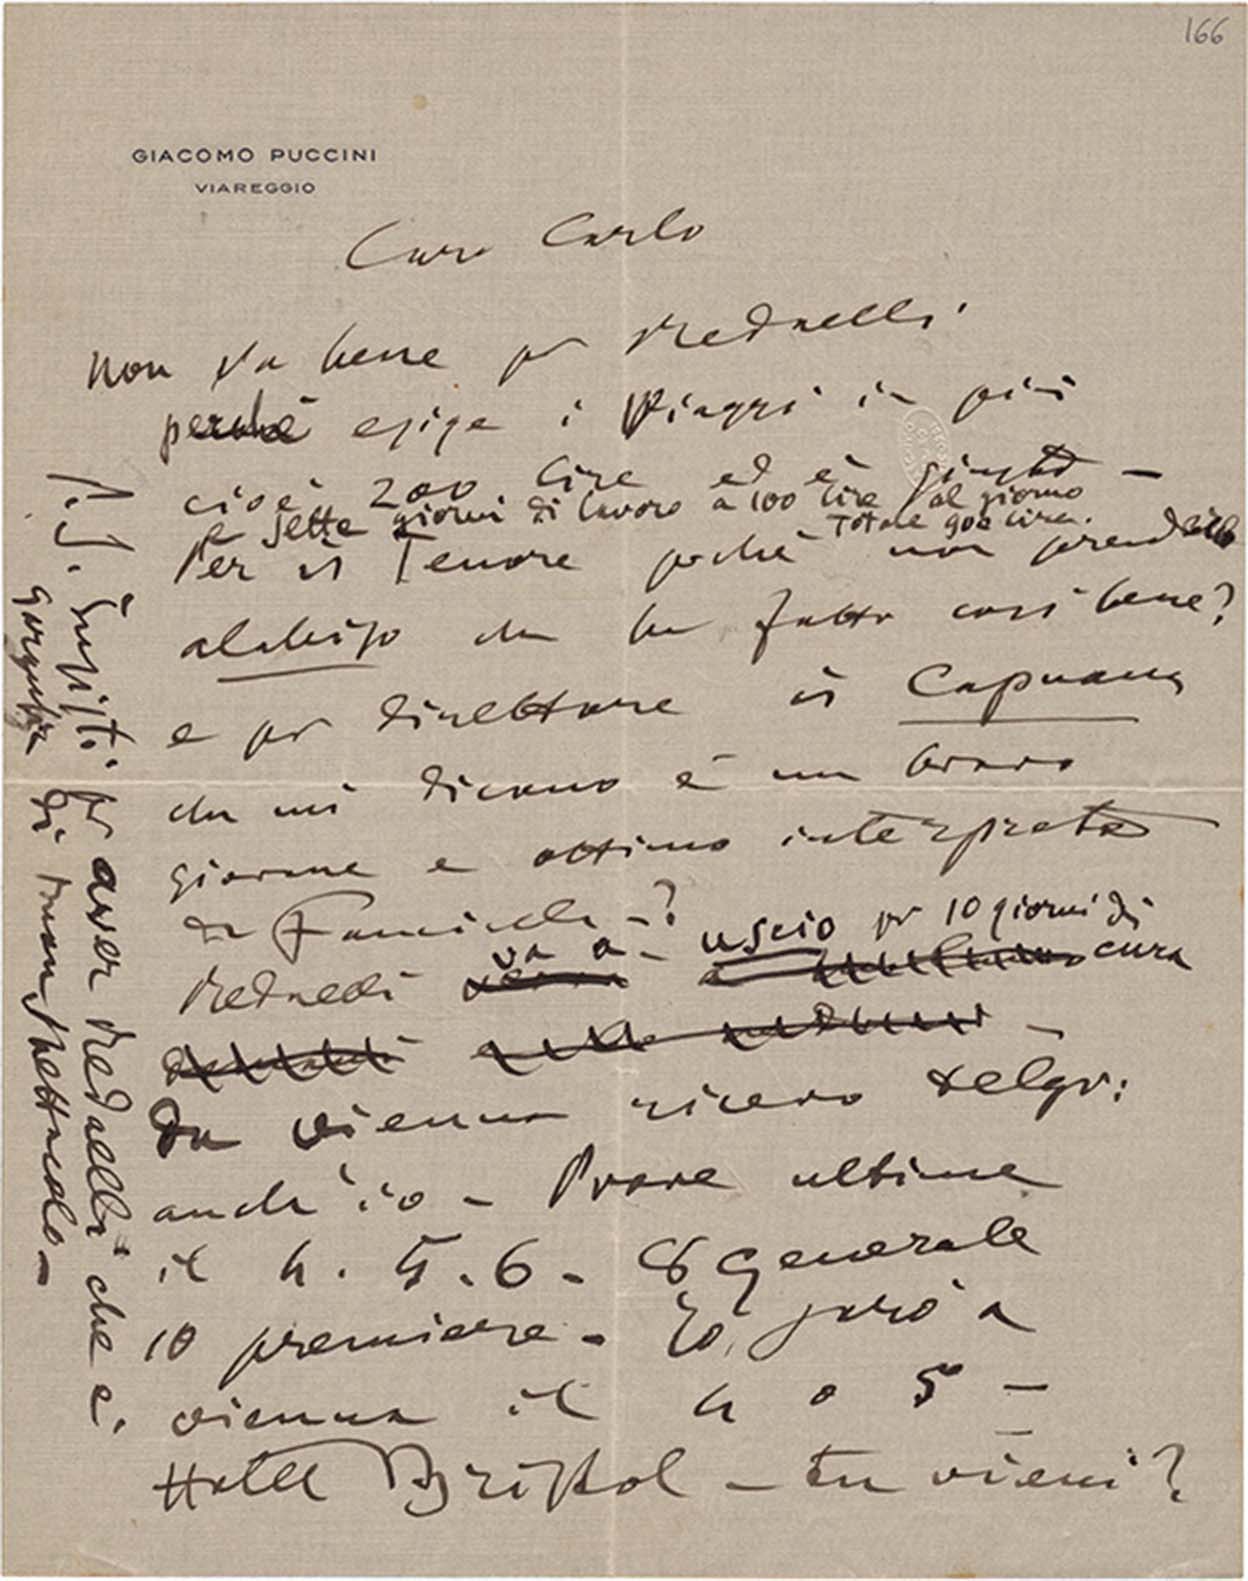 166
GIACOMO PUCCINI
VIAREGGIO
Caro Carlo
Non va bene per Medaelli
perché esige i viaggi in più
cioè 200 lire ed è giusto —
e sette giorni di lavoro a 100 lire al giorno
Totale 900 lire.
Per il Tenore perché non prendete
alabiso che ha fatto così bene?
e per direttore il Capuana
che mi dicono è un bravo
giovane e ottimo interprete
di Fanciulla -?
va a - uscio per 10 giorni di
cura
Da Vienna ricevo telegr:
anch'io - Prove ultime
il 4. 5. 6 - 8 generale
10 premiere - Io sarò a
Vienna il 4 o 5 —
Hotel Bristol - tu vieni?
P.S. Insisti per aver che è
garanzia di buon spettacolo —